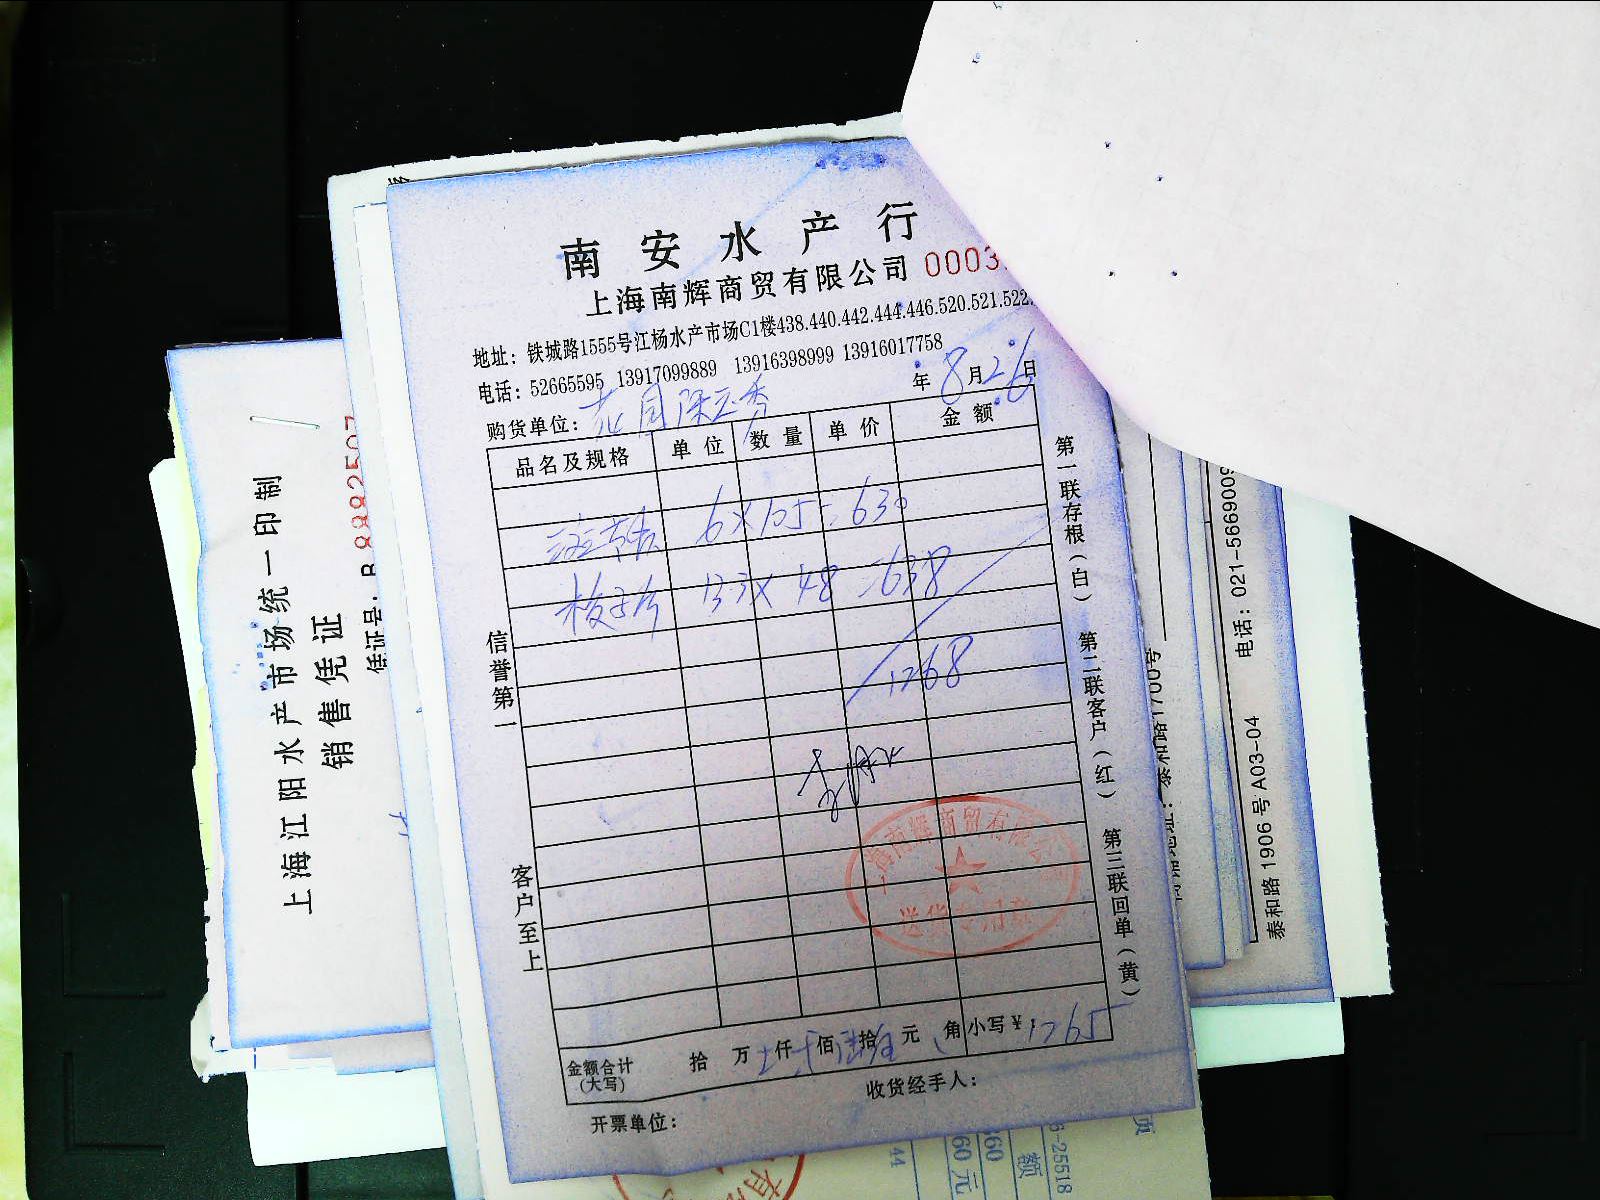 南安水产行
上海南辉商贸有限公司 0003
地址：铁城路1555号江杨水产市场C1楼438.440.442.444.446.520.521.522.
电话：52665595 13917099889 13916398999 13916017758
年 8月26日
购货单位：
品名及规格 单位 数量 单价 金额
6×105=630
13.3×48=638
1268
信誉第一
客户至上
第一联存根（白） 第二联客户（红） 第三联回单（黄）
上海南辉商贸有限公司
送货专用章
金额合计（大写） 拾 万 仟 佰 拾 元 角 小写¥：1265
收货经手人：
开票单位：
上海江阳水产市场统一印制
销售凭证
凭证号：
8882507
1700号
电话：021-5669009
泰和路1906号A03-04
44
60元
360
额
25518
页